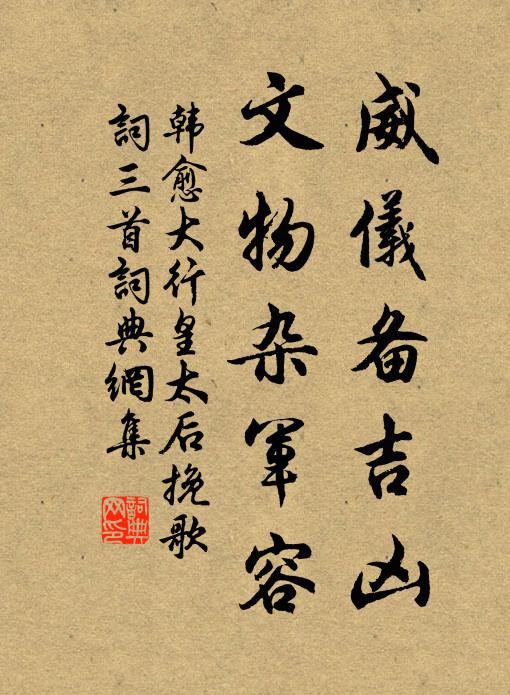 威儀备吉凶
文物杂軍容
韩愈大行皇太后挽歌
詞三首詞典網集
詞典
网印